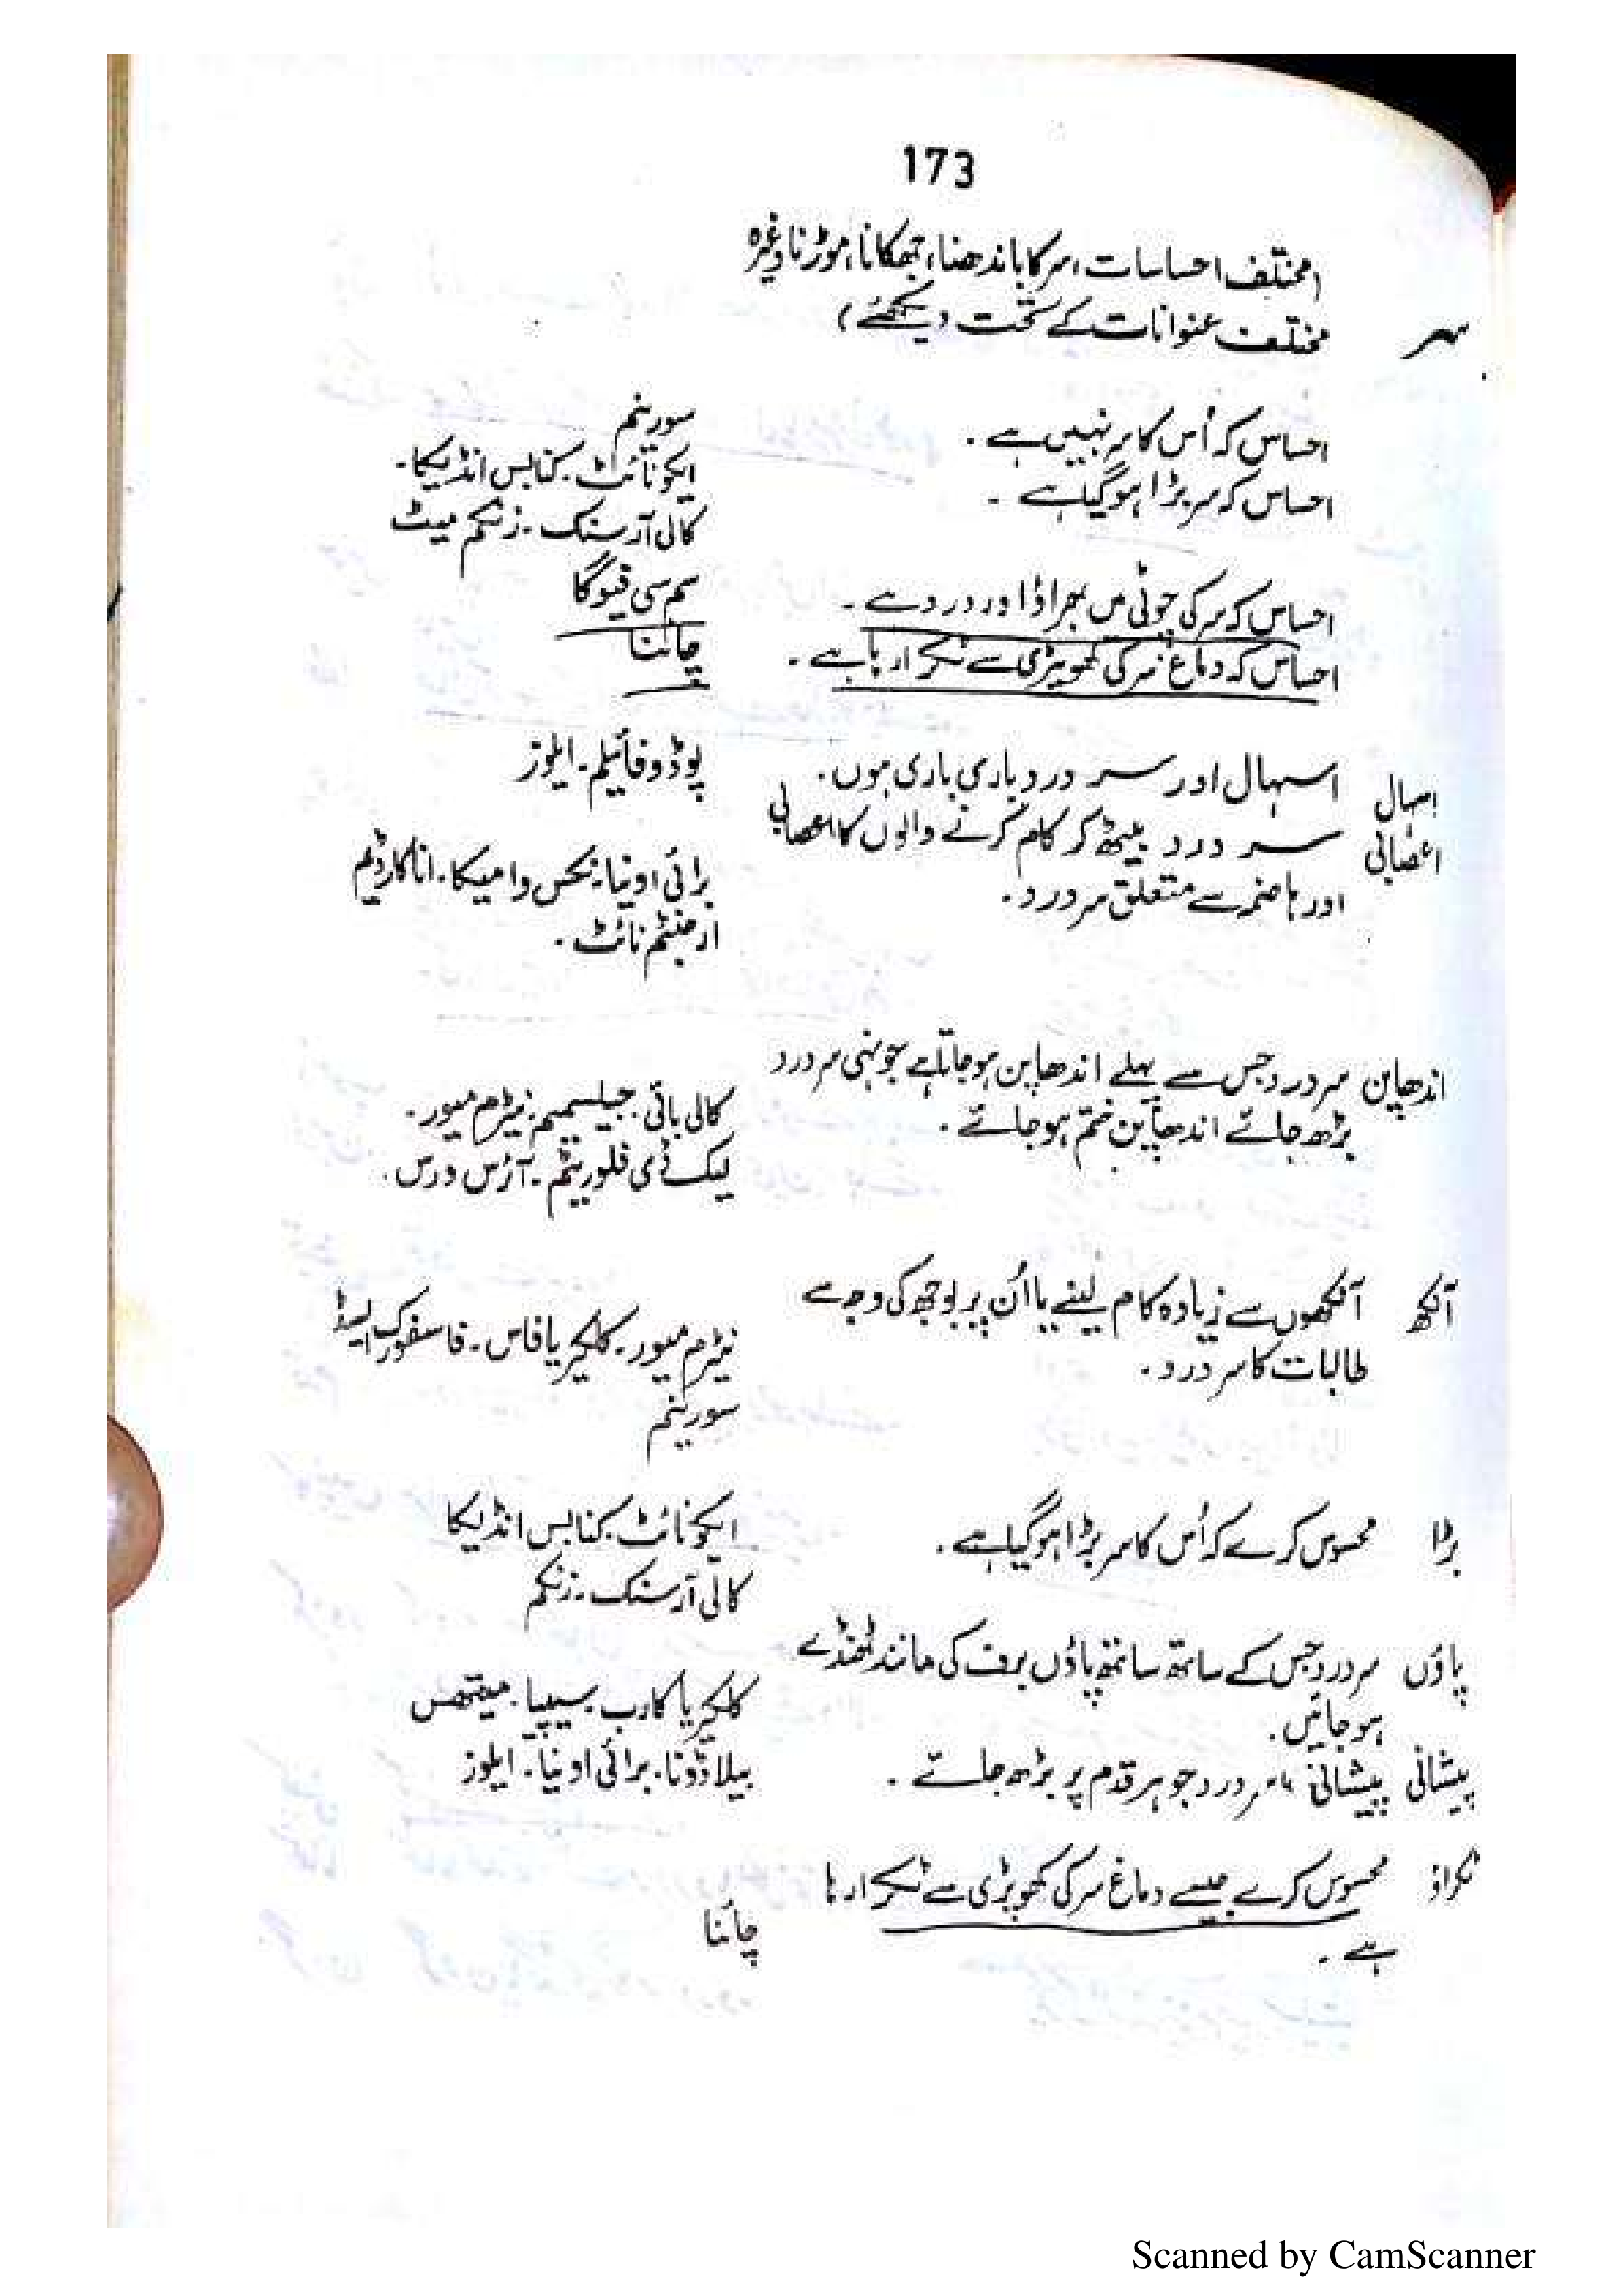 173
(مختلف احساسات، سر کا باندھنا، جھکانا، موڑنا وغیرہ
سر مختلف عنوانات کے تحت دیکھئے)
احساس کہ اُس کا سر نہیں ہے۔ سورینم
احساس کہ سر بڑا ہو گیا ہے۔ ایکونائٹ۔ کنابس انڈیکا۔
کالی آرسنک۔ زنکم میٹ
احساس کہ سر کی چوٹی میں بھراؤ اور درد ہے۔ سم سی فیوگا
احساس کہ دماغ سر کی کھوپڑی سے ٹکرا رہا ہے۔ چائنا
اسہال اسہال اور سر درد باری باری ہوں۔ پوڈوفائیلم۔ ایلوز
اعصابی سر درد بیٹھ کر کام کرنے والوں کا اعصابی
اور ہاضمہ سے متعلق سر درد۔ برائی اونیا۔ نکس وامیکا۔ اناکارڈیم
ارجنٹم نائٹ۔
اندھاپن سر درد جس سے پہلے اندھاپن ہو جاتا ہے جونہی سر درد
بڑھ جائے اندھاپن ختم ہو جائے۔ کالی بائی۔ جیلسیمیم۔ نیٹرم میور۔
لیک ڈی فلوریٹم۔ آئرس ورس۔
آنکھ آنکھوں سے زیادہ کام لینے یا اُن پر بوجھ کی وجہ سے
طالبات کا سر درد۔ نیٹرم میور۔ کلکیریا فاس۔ فاسفورک ایسڈ
سورینم
بڑا محسوس کرے کہ اُس کا سر بڑا ہو گیا ہے۔ ایکونائٹ۔ کنابس انڈیکا
کالی آرسنک۔ زنکم
پاؤں سر درد جس کے ساتھ ساتھ پاؤں برف کی مانند ٹھنڈے
ہو جائیں۔ کلکیریا کارب۔ سیپیا۔
پیشانی پیشانی سر درد جو ہر قدم پر بڑھ جائے۔ بیلاڈونا۔ برائی اونیا۔ ایلوز
ٹکراؤ محسوس کرے جیسے دماغ سر کی کھوپڑی سے ٹکرا رہا
ہے۔ چائنا
Scanned by CamScanner